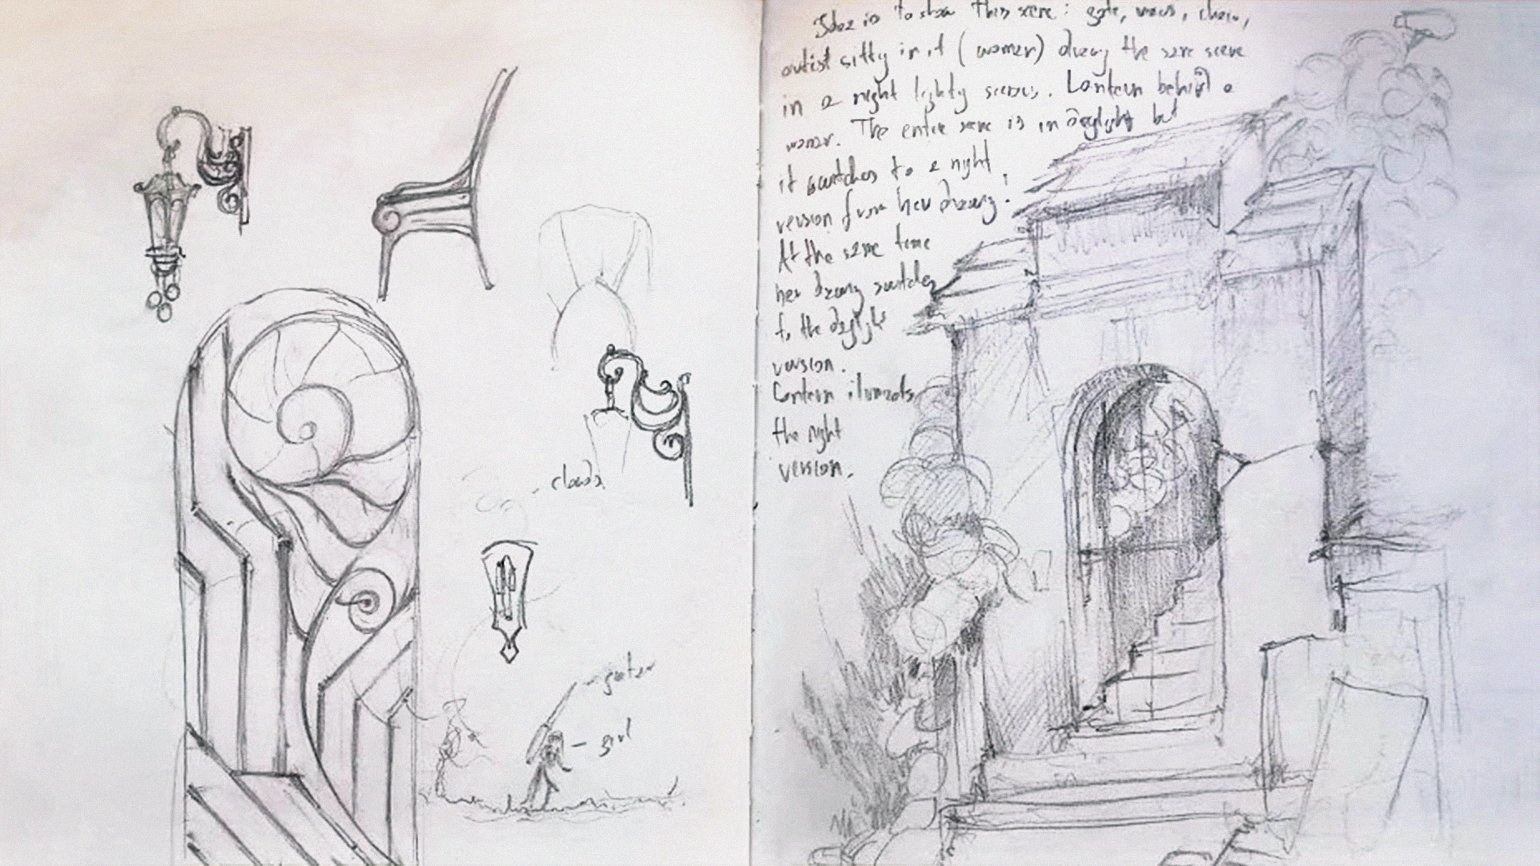 clouds
guitar
girl
Idea is to show this scene: gate, woman, chair,
artist sitty in it (woman) drawing the same scene
in a night lighty scenes. Lantern behind a
woman. The entire scene is in daylight but
it switches to a night
version from her drawing!
At the same time
her drawing switches
to the daylight
version.
Lantern iluminates
the night
version.